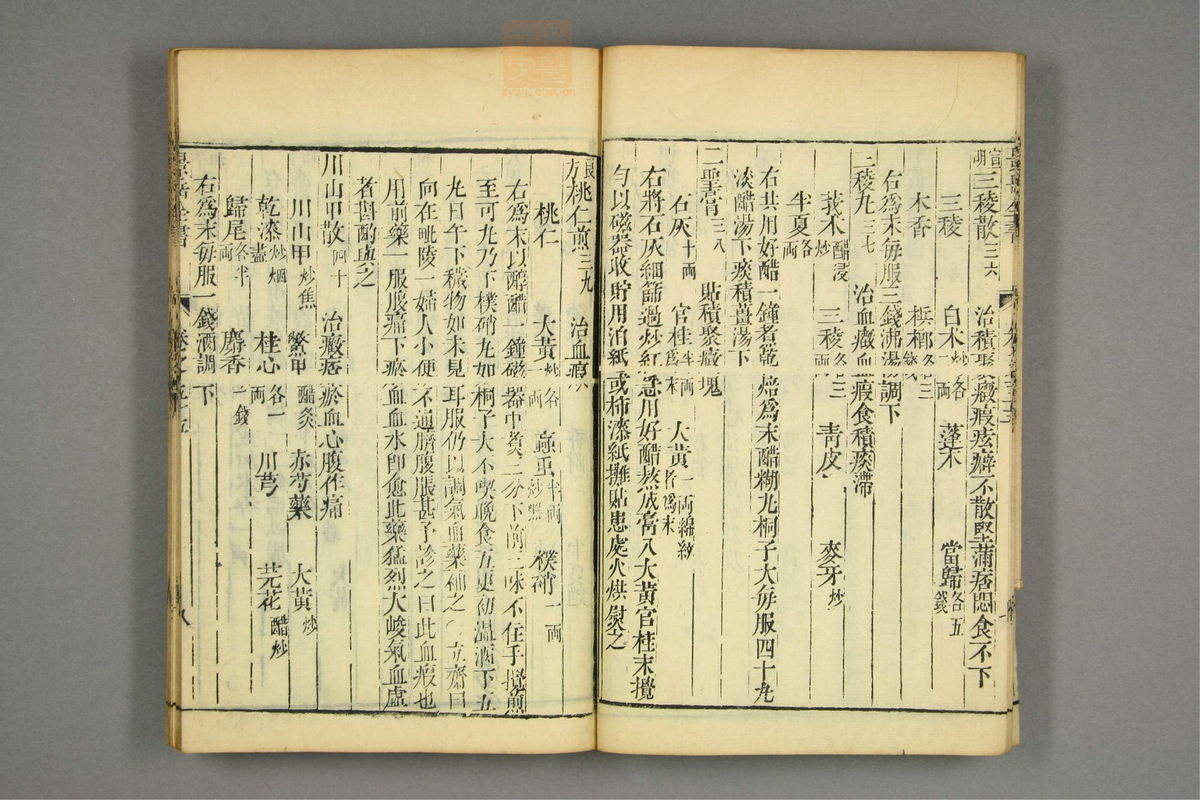 宣明三稜散三六　治積聚癥瘕痃癖不散堅滿痞悶食不下
三稜　白朮炒各一両　蓬朮　當歸各五錢
木香　檳榔各三錢
右爲末每服三錢沸湯調下
三稜丸三七　治血癥血瘕食積痰滯
莪朮醋浸炒　三稜各三両　靑皮　麥牙炒
半夏各一両
右共用好醋一鐘煮乾焙爲末醋糊丸桐子大每服四十丸
淡醋湯下痰積薑湯下
二聖膏三八　貼積聚癥塊
石灰十両　官桂半両爲末　大黃一両綿紋者爲末
右將石灰細篩過炒紅急用好醋熬成膏入大黃官桂末攪
勻以磁器收貯用泊紙或柿漆紙攤貼患處火烘熨之
良方桃仁煎三九　治血瘕
桃仁　大黃炒各一両　䖟䖝半両炒黑　樸硝一両
右爲末以醇醋一鐘磁器中煑三分下前三味不住手攪煎
至可丸乃下樸硝丸如桐子大不喫晚食五更初温酒下五
丸日午下穢物如未見耳服仍以調氣血藥補之〇立齋曰
向在毗陵一婦人小便不通臍腹脹甚予診之曰此血瘕也
用前藥一服腹痛下瘀血血水卽愈此藥猛烈大峻氣血虛
者斟酌與之
川山甲散四十　治癥痞瘀血心腹作痛
川山甲炒焦　鱉甲醋炙　赤芍藥　大黃炒
乾漆炒烟盡　桂心各一両　川芎　芫花醋炒
歸尾各半両　麝香一錢
右爲末每服一錢酒調下
景岳全書
卷之五十五
八
zysj.com.cn